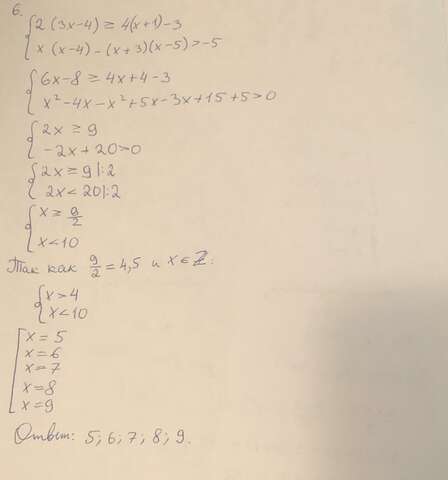 6.
{ 2 (3x-4) ≥ 4(x+1)-3
x (x-4) - (x+3)(x-5) > -5
{ 6x-8 ≥ 4x+4-3
x²-4x-x²+5x-3x+15+5>0
{ 2x ≥ 9
-2x+20>0
{ 2x ≥ 9 |:2
2x < 20 |:2
{ x ≥ 9/2
x < 10
Так как 9/2 = 4,5 и x ∈ Z:
{ x > 4
x < 10
[ x = 5
x = 6
x = 7
x = 8
x = 9
Ответ: 5; 6; 7; 8; 9.